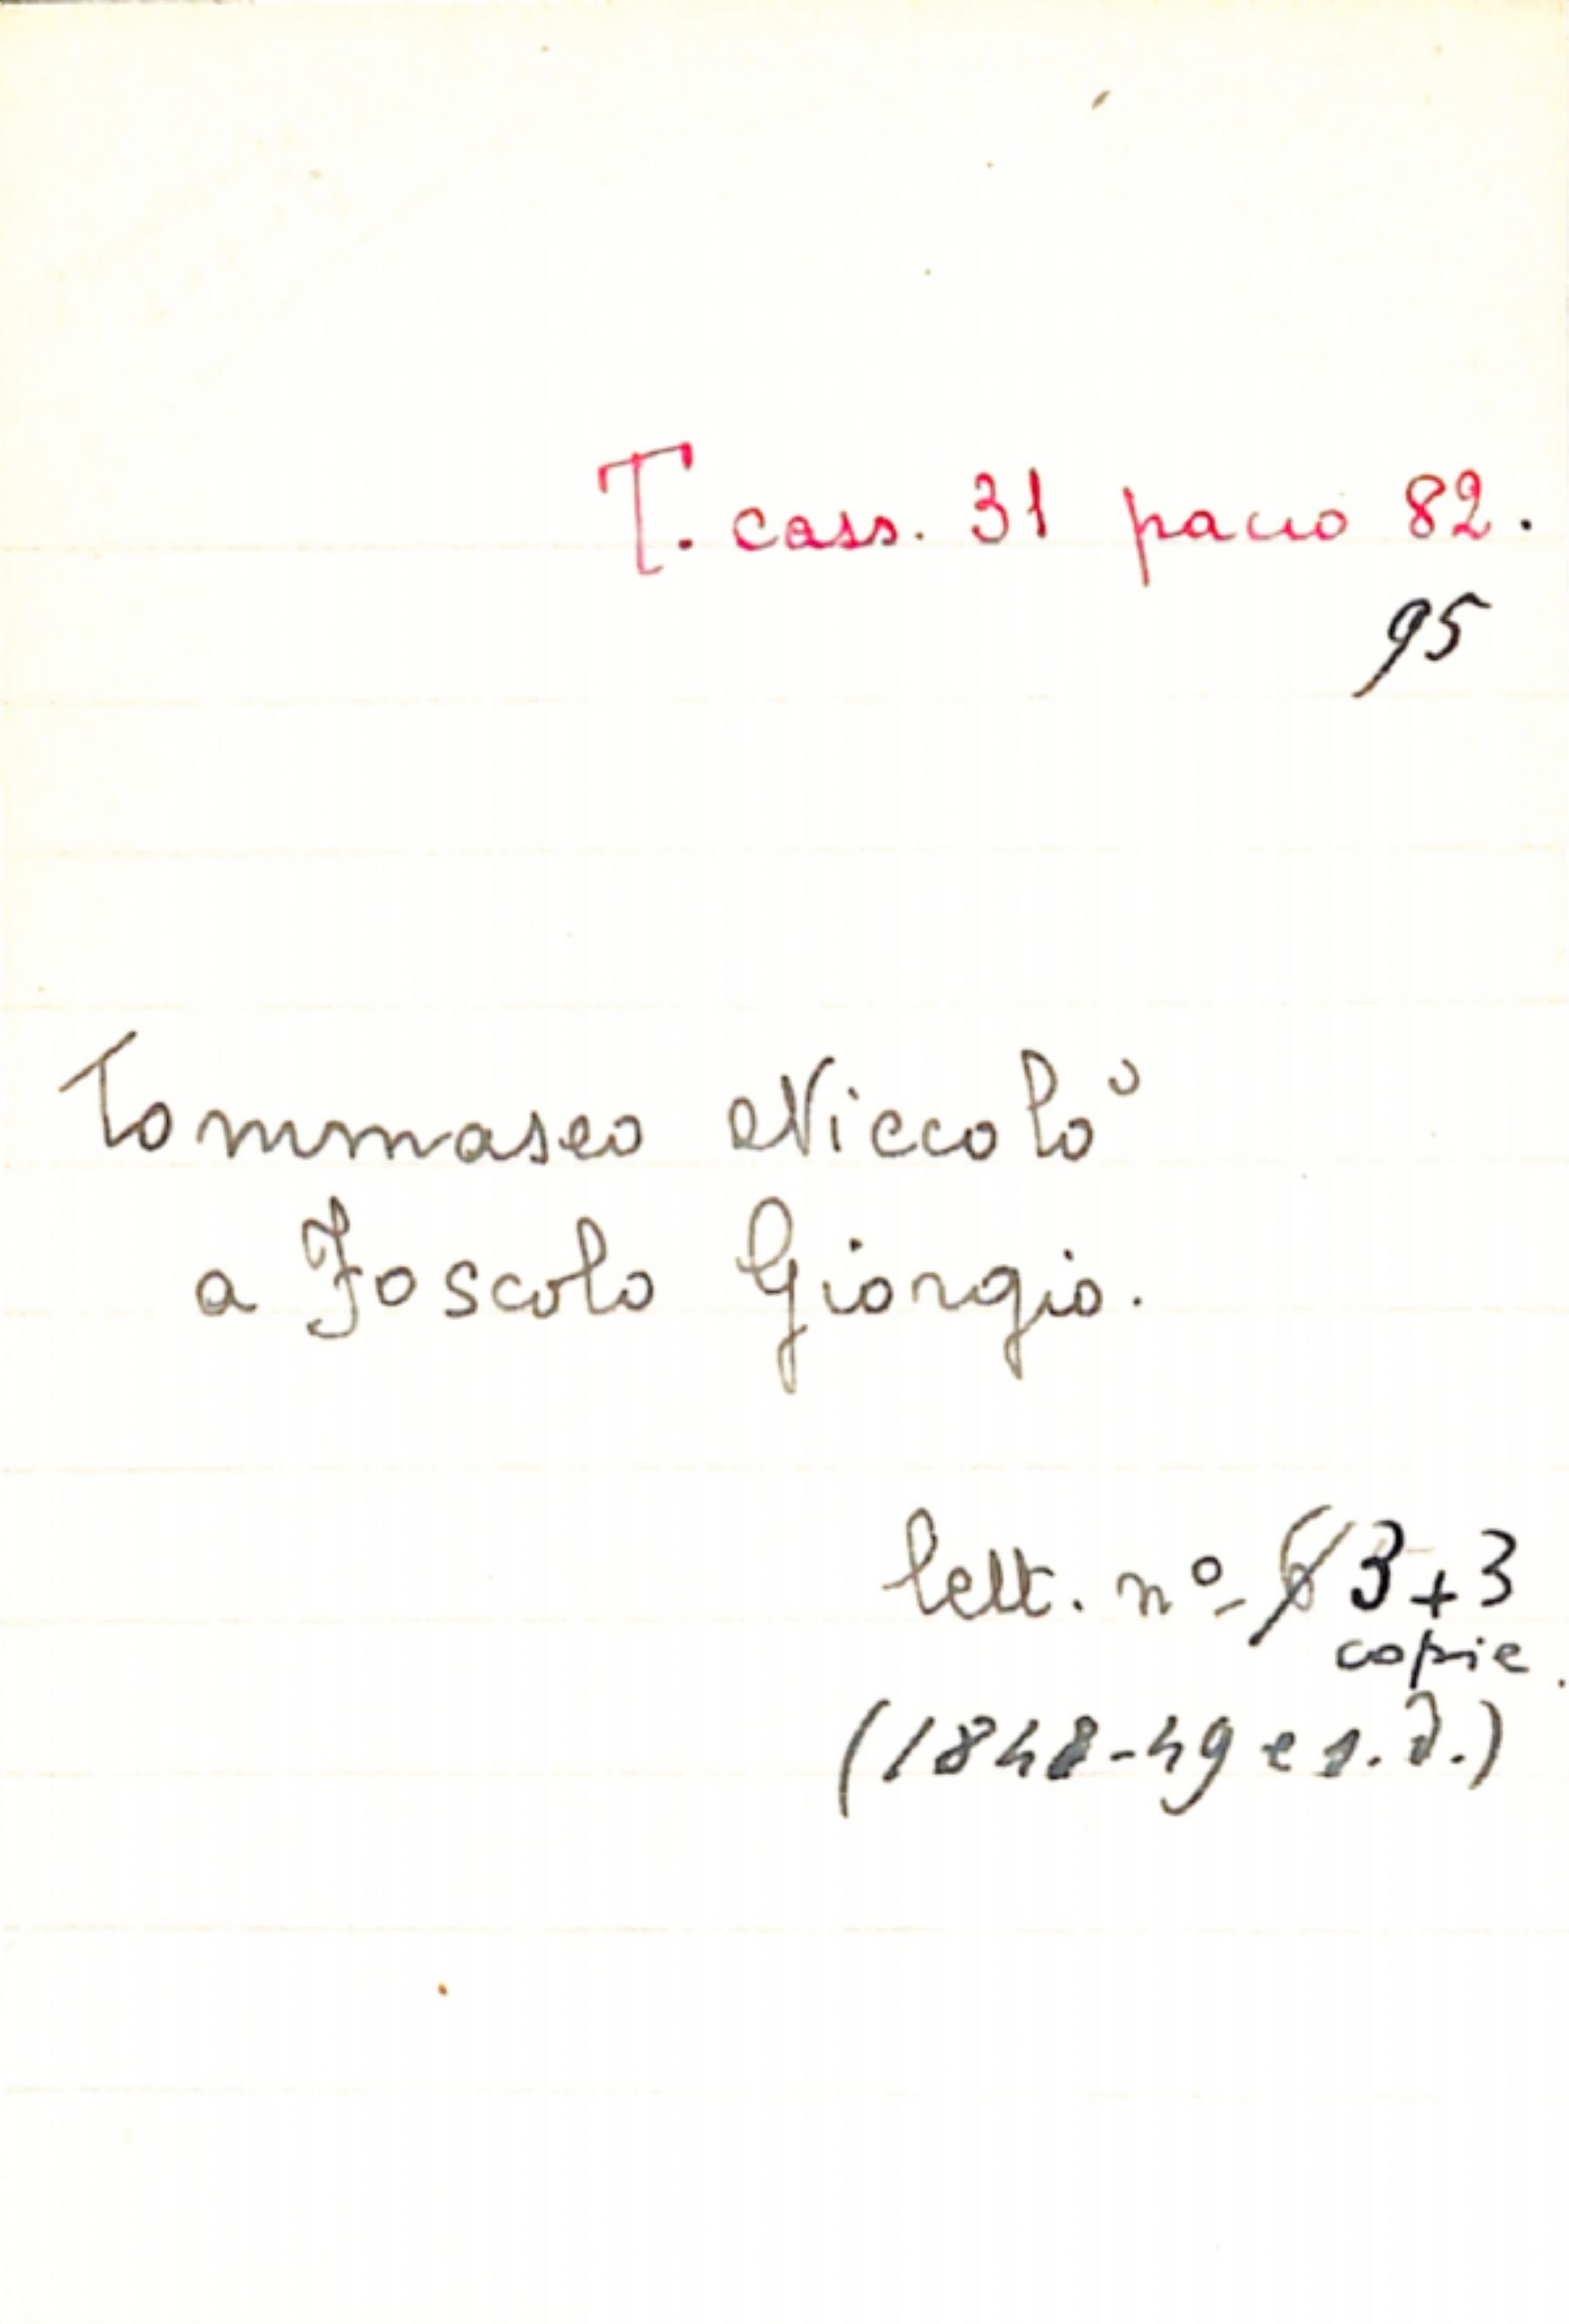 T. cass. 31 pacco 82.
95
Tommaseo Niccolò
a Foscolo Giorgio.
lett. nº 6 3+3
copie.
(1848-49 e s.d.)